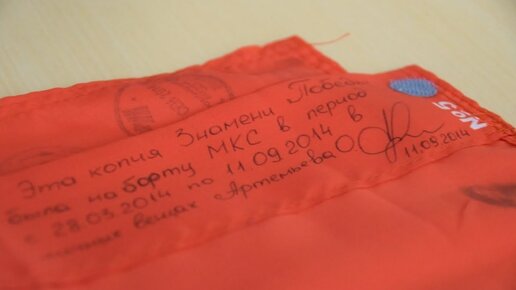 Эта копия Знамени Победы
была на борту МКС в период
с 28.03.2014 по 11.09.2014 в
личных вещах Артемьева О.
11.09.2014
№5